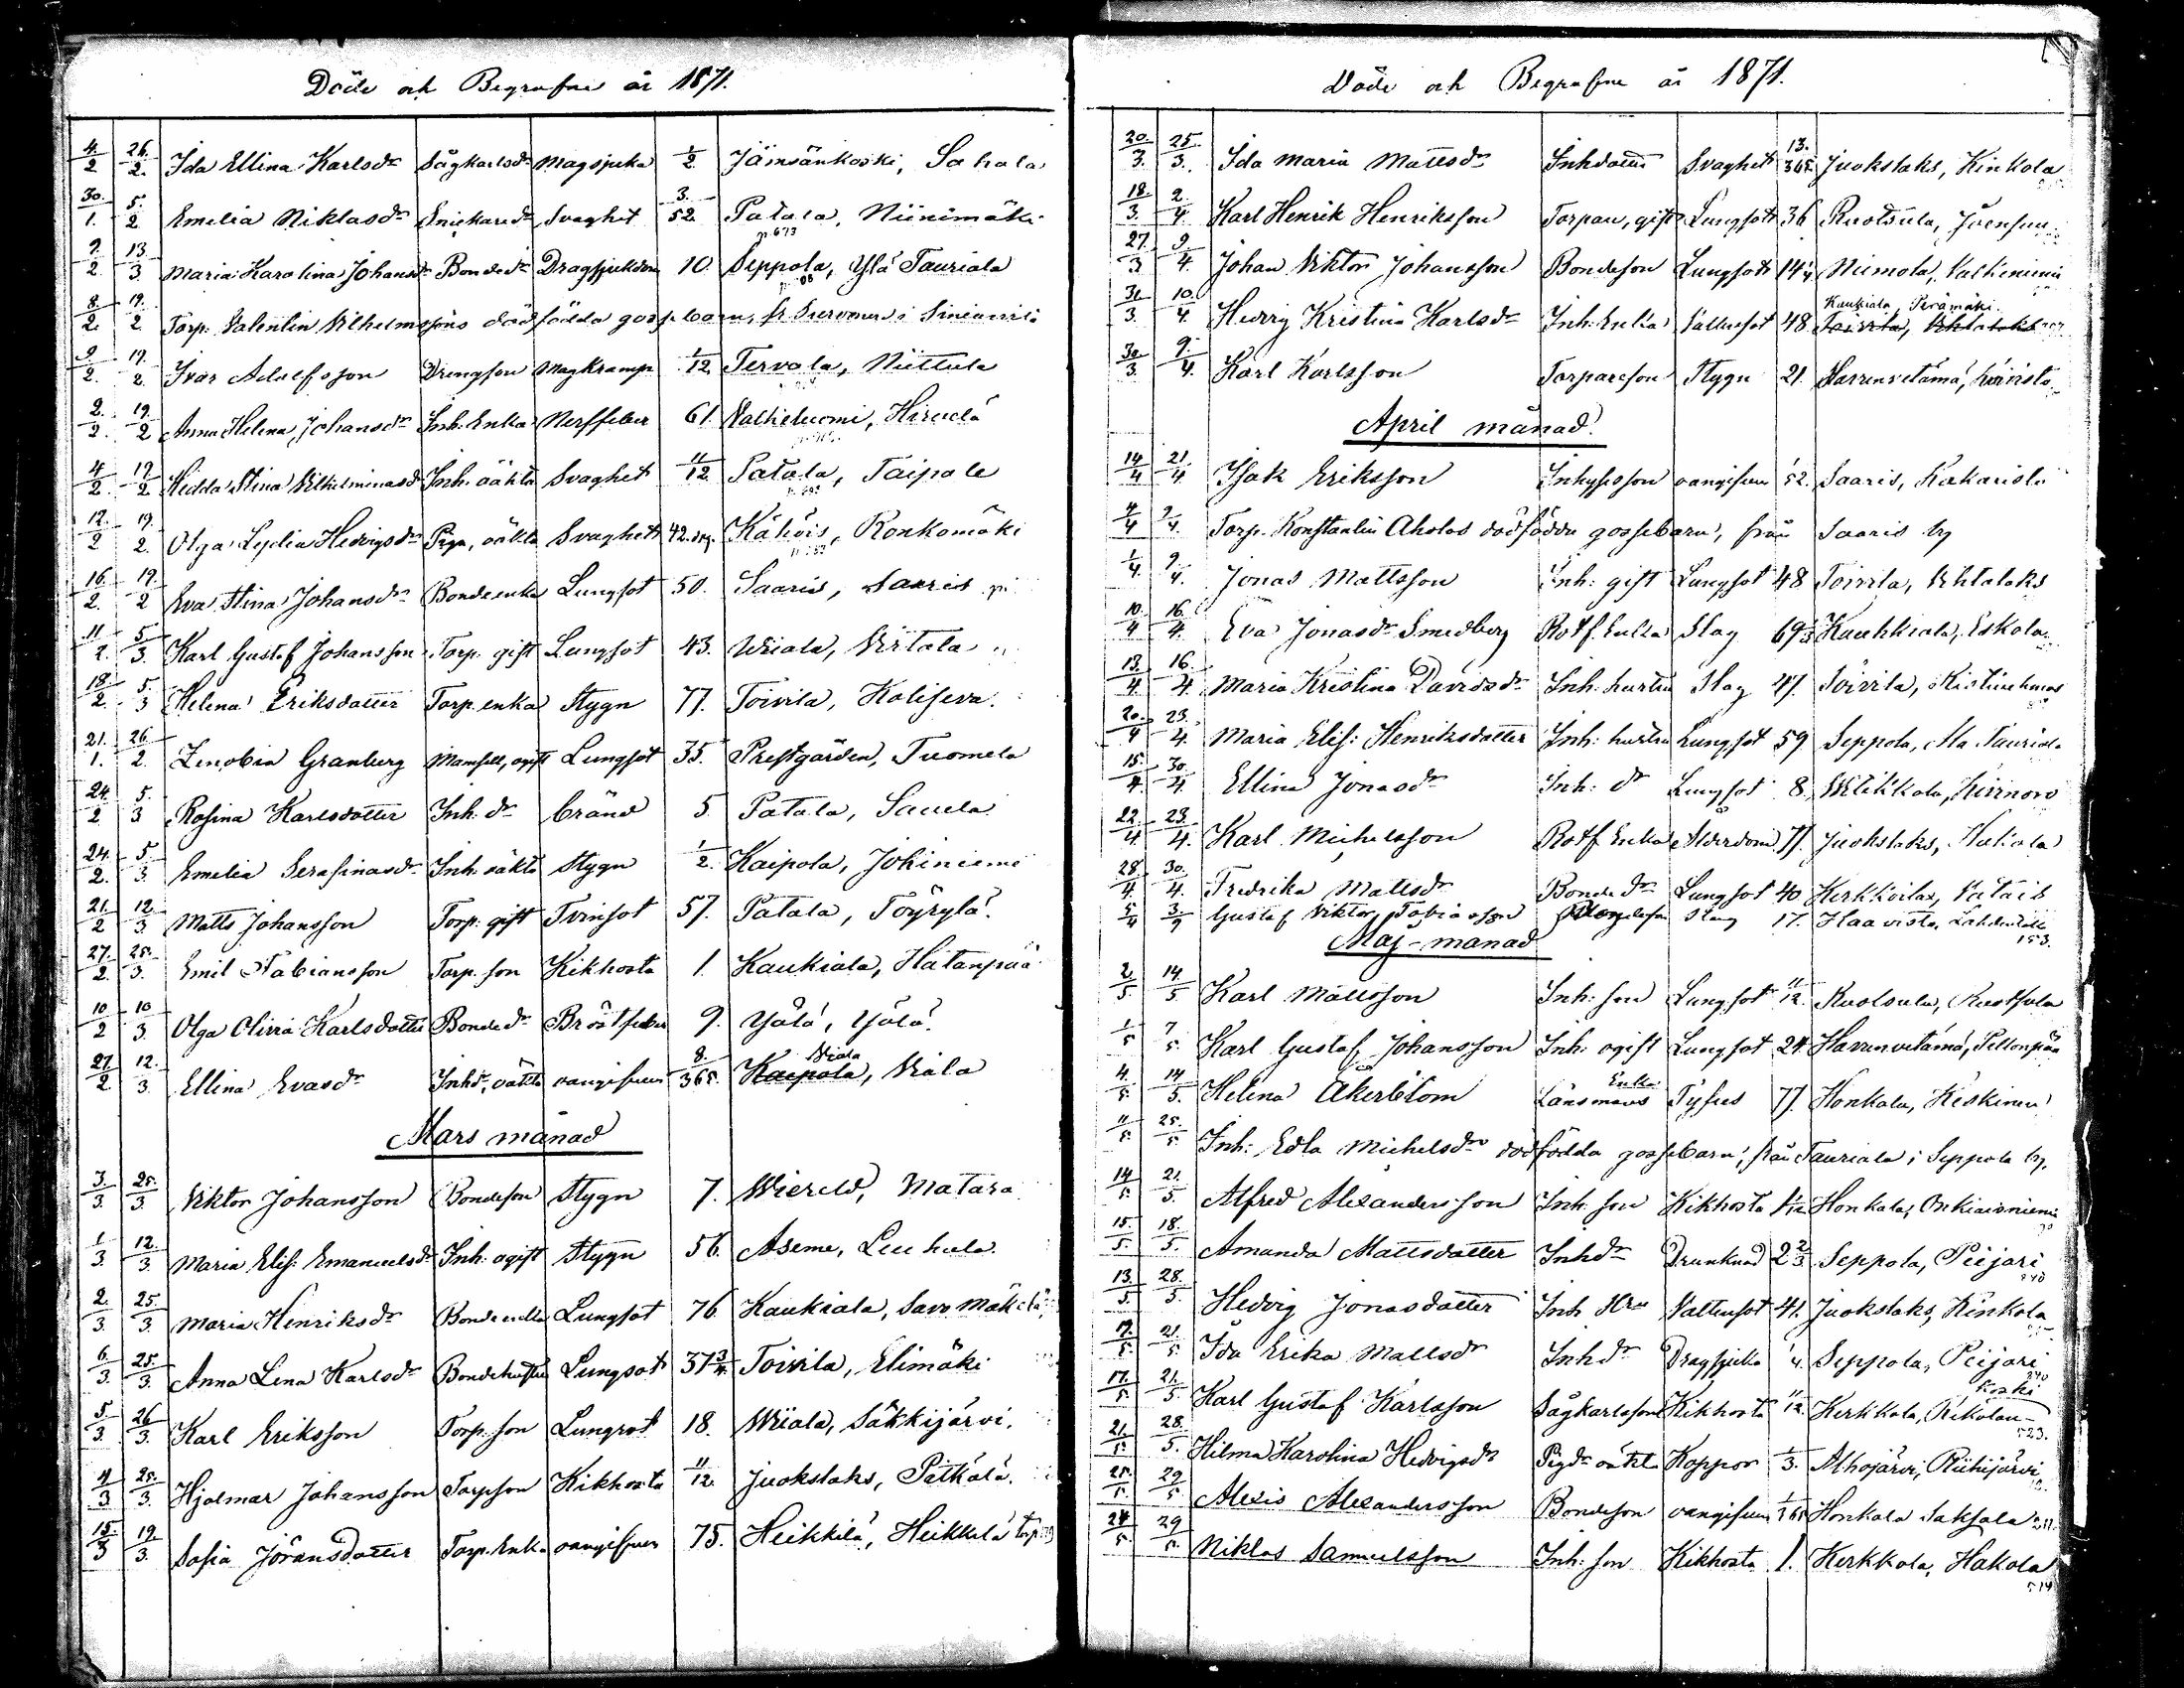 Döde och Begrafne år 1871.
4/2 26/2 Ida Ellina Karlsdr Sågkarlsdr Magsjuka 1/2 Jämsänkoski, Sahala
30/1 5/2 Emelia Niklasdr Snickaredr Svaghet 3/52 Patala, Niinimäki
p. 673
9/2 13/3 Maria Karolina Johansdr Bondedr Dragsjukdom 10. Seppola, Ylä Tauriala
8/2 19/2 Torp. Valentin Vilhelmssons dödfödda gossebarn, fr.
9/2 19/2 Ivar Adolfsson Drengson Magkramp 1/12 Tervala, Niittula
2/2 19/2 Anna Helena Johansdr Inh. Enka Nerffeber 61. Valkeluomi, Hirvelä
4/2 19/2 Hedda Stina Vilhelminasd Inh. oäkta Svaghet 11/12 Patala, Taipale
12/2 19/2 Olga Lydia Hedvigsdr Piga, oäkta Svaghet 42. dag. Kähöis, Ronkomäki
16/2 19/2 Eva Stina Johansdr Bondeenka Lungsot 50. Saaris, Saaris
11/2 5/3 Karl Gustaf Johansson Torp. gift Lungsot 43. Wiiala, Virtala
18/2 5/3 Helena Eriksdotter Torp. enka Stygn 77. Toivila, Kalliseva.
21/1 26/2 Zenobia Granberg Mamsell, ogift Lungsot 35. Prestgården, Tuomela
24/2 5/3 Rosina Karlsdotter Inh. dr bränd 5 Patala, Saucela
24/2 5/3 Emelia Serafinasdr Inh. oäkta Stygn 1/2 Kaipola, Jokiniemi
21/2 12/3 Matts Johansson Torp. gift Tvinsot 57. Patala, Töyrylä.
27/2 25/3 Emil Fabiansson Torp. son Kikhosta 1. Kaukiala, Hatanpää
10/2 10/3 Olga Olivia Karlsdotter Bondedr Bröstfeber 9. Ylälä, Ylälä.
Wiala
27/2 12/3 Ellina Evasdr Inhdr, oäkta oangifven 8/365. Kaipola, Viala
Mars månad
3/3 25/3 Viktor Johansson Bondeson Stygn 7. Matara
1/3 12/3 Maria Elis. Emanuelsdr Inh. ogift Stygn 56. Aseme, Leuhula
2/3 25/3 Maria Henriksdr Bondeenka Lungsot 76 Kaukiala, Savo Mäkelä
6/3 25/3 Anna Lena Karlsdr Bondehustru Lungsot 37 3/4 Toivila, Elimäki
5/3 26/3 Karl Eriksson Torp. son Lungsot 18. Wiiala, Säkkijärvi.
4/3 25/3 Hjalmar Johansson Torpson Kikhosta 11/12 Juokslaks, Pitkälä.
15/3 19/3 Sofia Jöransdotter Torp. Enka oangifven 75. Heikkilä, Heikkilä torp
Döde och Begrafne år 1871.
20/3 25/3 Ida Maria Mattsdr Inhdotter Svaghet 13/365 Juokslaks, Kinkola
18/3 2/4 Karl Henrik Henriksson Torpare, gift Lungsot 36 Ruotsula, Joensuu
27/3 9/4 Johan Viktor Johansson Bondeson Lungsot 14 1/4 Niemola, Valkeniemi
Kaukiala, Perämäki.
31/3 10/4 Hedvig Kristina Karlsdr Inh. Enka Vattusot 48 Toivila,
30/3 9/4 Karl Karlsson Torpareson Stygn 21. Havrenvetämä, Koivisto
April månad.
14/4 21/4 Isak Eriksson Inhysesson oangifven 1/52. Saaris, Kakaristo
4/4 9/4 Torp. Konstantin Aholas dödfödda gossebarn, från Saaris by
1/4 9/4 Jonas Mattsson Inh. gift Lungsot 48 Toivila, Vihtalaks
10/4 16/4 Eva Jonasdr Smedberg Rotf. Enka Slag 69 Kaukkiala, Eskola.
13/4 16/4 Maria Kristina Davidsdr Inh. hustru Slag 47. Toivila,
20/4 23/4 Maria Elis: Henriksdotter Inh: hustru Lungsot 59 Seppola, Ala Tauriala
15/4 30/4 Ellina Jonasdr Inh: dr Lungsot 8.
22/4 23/4 Karl Michelsson Rotf Enka Ålderdom 77. Juokslaks,
28/4 30/4 Fredrika Mattsdr Bondedr Lungsot 40 Kerkkola,
5/4 3/4 Gustaf Viktor Tobiasson Slag 17. Haavisto,
153.
Maj-månad
2/5 14/5 Karl Mattsson Inh: son Lungsot 11/12 Ruotsula, Ruotsula
1/5 7/5 Karl Gustaf Johansson Inh: ogift Lungsot 24. Havrenvetämä, Peltonpää
4/5 14/5 Helena Åkerblom Länsmans Enka Tyfus 77. Honkala, Keskinen
11/5 25/5 Inh: Edla Michelsdrs dödfödda gossebarn, från Tauriala i Seppola by.
14/5 21/5 Alfred Alexandersson Inh. son Kikhosta 1 1/12 Honkala, Onkiaisniemi
15/5 18/5 Amanda Mattsdotter Inhdr Drunknad 2 2/3 Seppola, Peijari
240
13/5 28/5 Hedvig Jonasdotter Inh Hru Vattusot 41. Juokslaks, Kinkola
17/5 21/5 Ida Erika Mattsdr Inhdr Dragsjuka 1/4. Seppola, Peijari
240
Koski
17/5 21/5 Karl Gustaf Karlsson Sågkarlsson Kikhosta 11/12 Kerkkola, Rekolan-
523.
21/5 28/5 Hilma Karolina Hedvigsdr Pigdr oäkta Koppor 1/3. Alhojärvi, Riihijärvi
25/5 29/5 Alexis Alexandersson Bondeson oangifven 1/365 Honkala Saksala
24/5 29/5 Niklas Samuelsson Inh: son Kikhosta 1. Kerkkola, Hakola
514